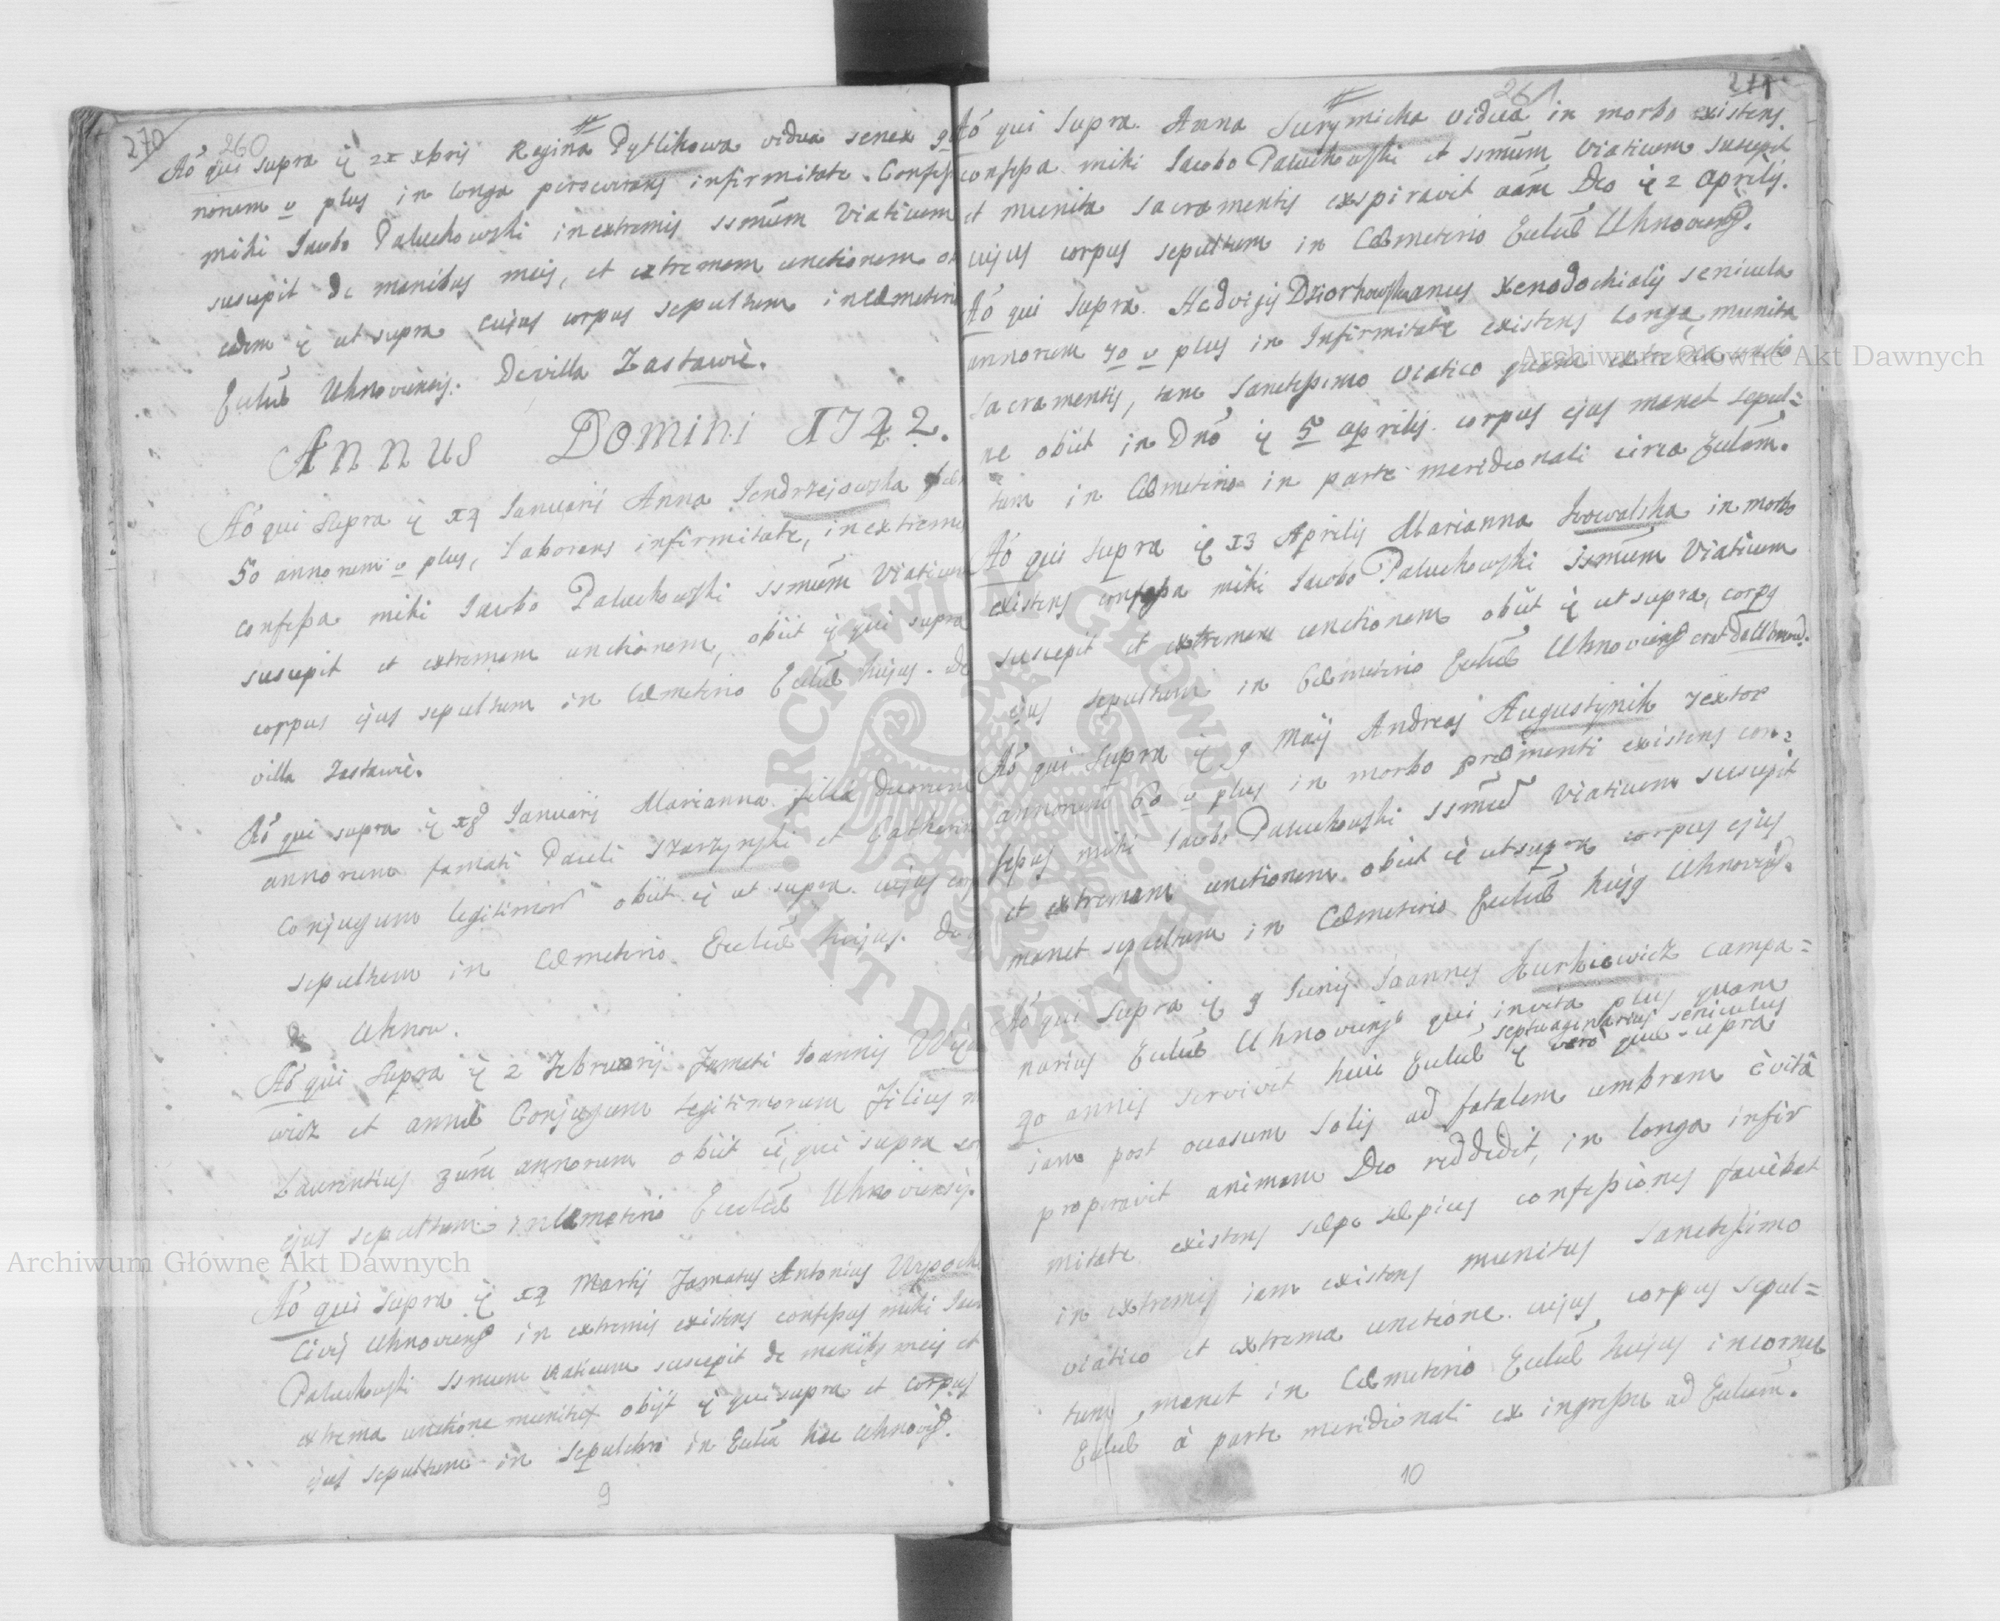 270 260
Aó qui supra ę 21 xbris Regina Pytlikowa vidua senex
norum v plus in longa perseverans infirmitate. Confess
mihi Jacobo Paluchowski in extremis SSmum Viaticum
suscepit de manibus meis, et extremam unctionem
eadem ę ut supra cujus corpus sepultum in Cæmeterio
Eccliæ Uhnoviensis. De villa Zastawie.
Annus Domini 1742.
Aó qui supra ę 14 Januarij Anna Jendrzejowska
50 annorum v plus, laborans infirmitate, in extremis
confessa mihi Jacobo Paluchowski SSmum Viaticum
suscepit et extremam unctionem, obiit ę qui supra
corpus ejus sepultum in Cæmeterio Eccliæ hujus. De
villa Zastawie.
Aó qui supra ę 18 Januarij Marianna filia duorum
annorum famati Pauli Starzynski et Catherin
Conjugum legitimorum obiit ę ut supra. cujus corp
sepultum in Cæmeterio Eccliæ hujus. de
Uhnow.
Aó qui supra ę 2 Februarij Famati Joannis
wicz et annæ Conjugum legitimorum Filius
Laurentius 3um annorum obiit ę qui supra
ejus sepultum in Cæmeterio Eccliæ Uhnoviensis.
Aó qui supra ę 14 Martij Famatus Antonius
Civis Uhnoviens in extremis existens confessus mihi Jaco
Paluchowski SSmum viaticum suscepit de manibus meis et
extrema unctione munitus obijt ę qui supra et corpus
ejus sepultum in sepulchro in Ecclia hac Uhnovis.
9
261 271
Aó qui supra. Anna Surymicha vidua in morbo existens
confessa mihi Jacobo Paluchowski et SSmum Viaticum suscepit
et munita sacramentis exspiravit aam Deo ę 2 aprilis.
cujus corpus sepultum in Cæmeterio Eccliæ Uhnoviens.
Aó qui supra. Hedvigis Dziorkowskanus Xenodochialis senicula
annorum 70 v plus in Infirmitate existens longa, munita
sacramentis, tam Sanctissimo Viatico quam extrema unctio
ne obiit in Dno ę 5 aprilis. corpus ejus manet sepul=
tum in Cæmeterio in parte meridionali circa Eccliam.
Aó qui supra ę 13 Aprilis Marianna Lwowalska in morbo
existens confessa mihi Jacobo Paluchowski SSmum Viaticum
suscepit et extremam unctionem obiit ę ut supra, corpus
ejus sepultum in Cæmeterio Eccliæ Uhnoviens erat de Uhnow.
Aó qui supra ę 9 Maij Andreas Augustynik rector
annorum 60 v plus in morbo præmenti existens con=
fessus mihi Jacobo Paluchowski SSmum Viaticum suscepit
et extremam unctionem obiit ę ut supra corpus ejus
manet sepultum in Cæmeterio Eccliæ hujus Uhnoviens.
Aó qui supra ę 9 Junij Joannes Kurkiewicz campa=
narius Eccliæ Uhnoviensis qui in vita plus quam
septuagenarius seniculus
30 annis servivit huic Eccliæ ę vero quæ supra
iam post occasum solis ad fatalem umbram è vitâ
properavit animam Deo reddidit, in longa infir
mitate existens sæpe sæpius confessiones faciebat
in extremis iam existens munitus Sanctissimo
viatico et extrema unctione. cujus corpus sepul=
tum manet in Cæmeterio Eccliæ hujus in cornu
Eccliæ à parte meridionali ex ingressu ad Eccliam.
10
Archiwum Główne Akt Dawnych
Archiwum Główne Akt Dawnych
ARCHIWUM GŁÓWNE · AKT DAWNYCH ·